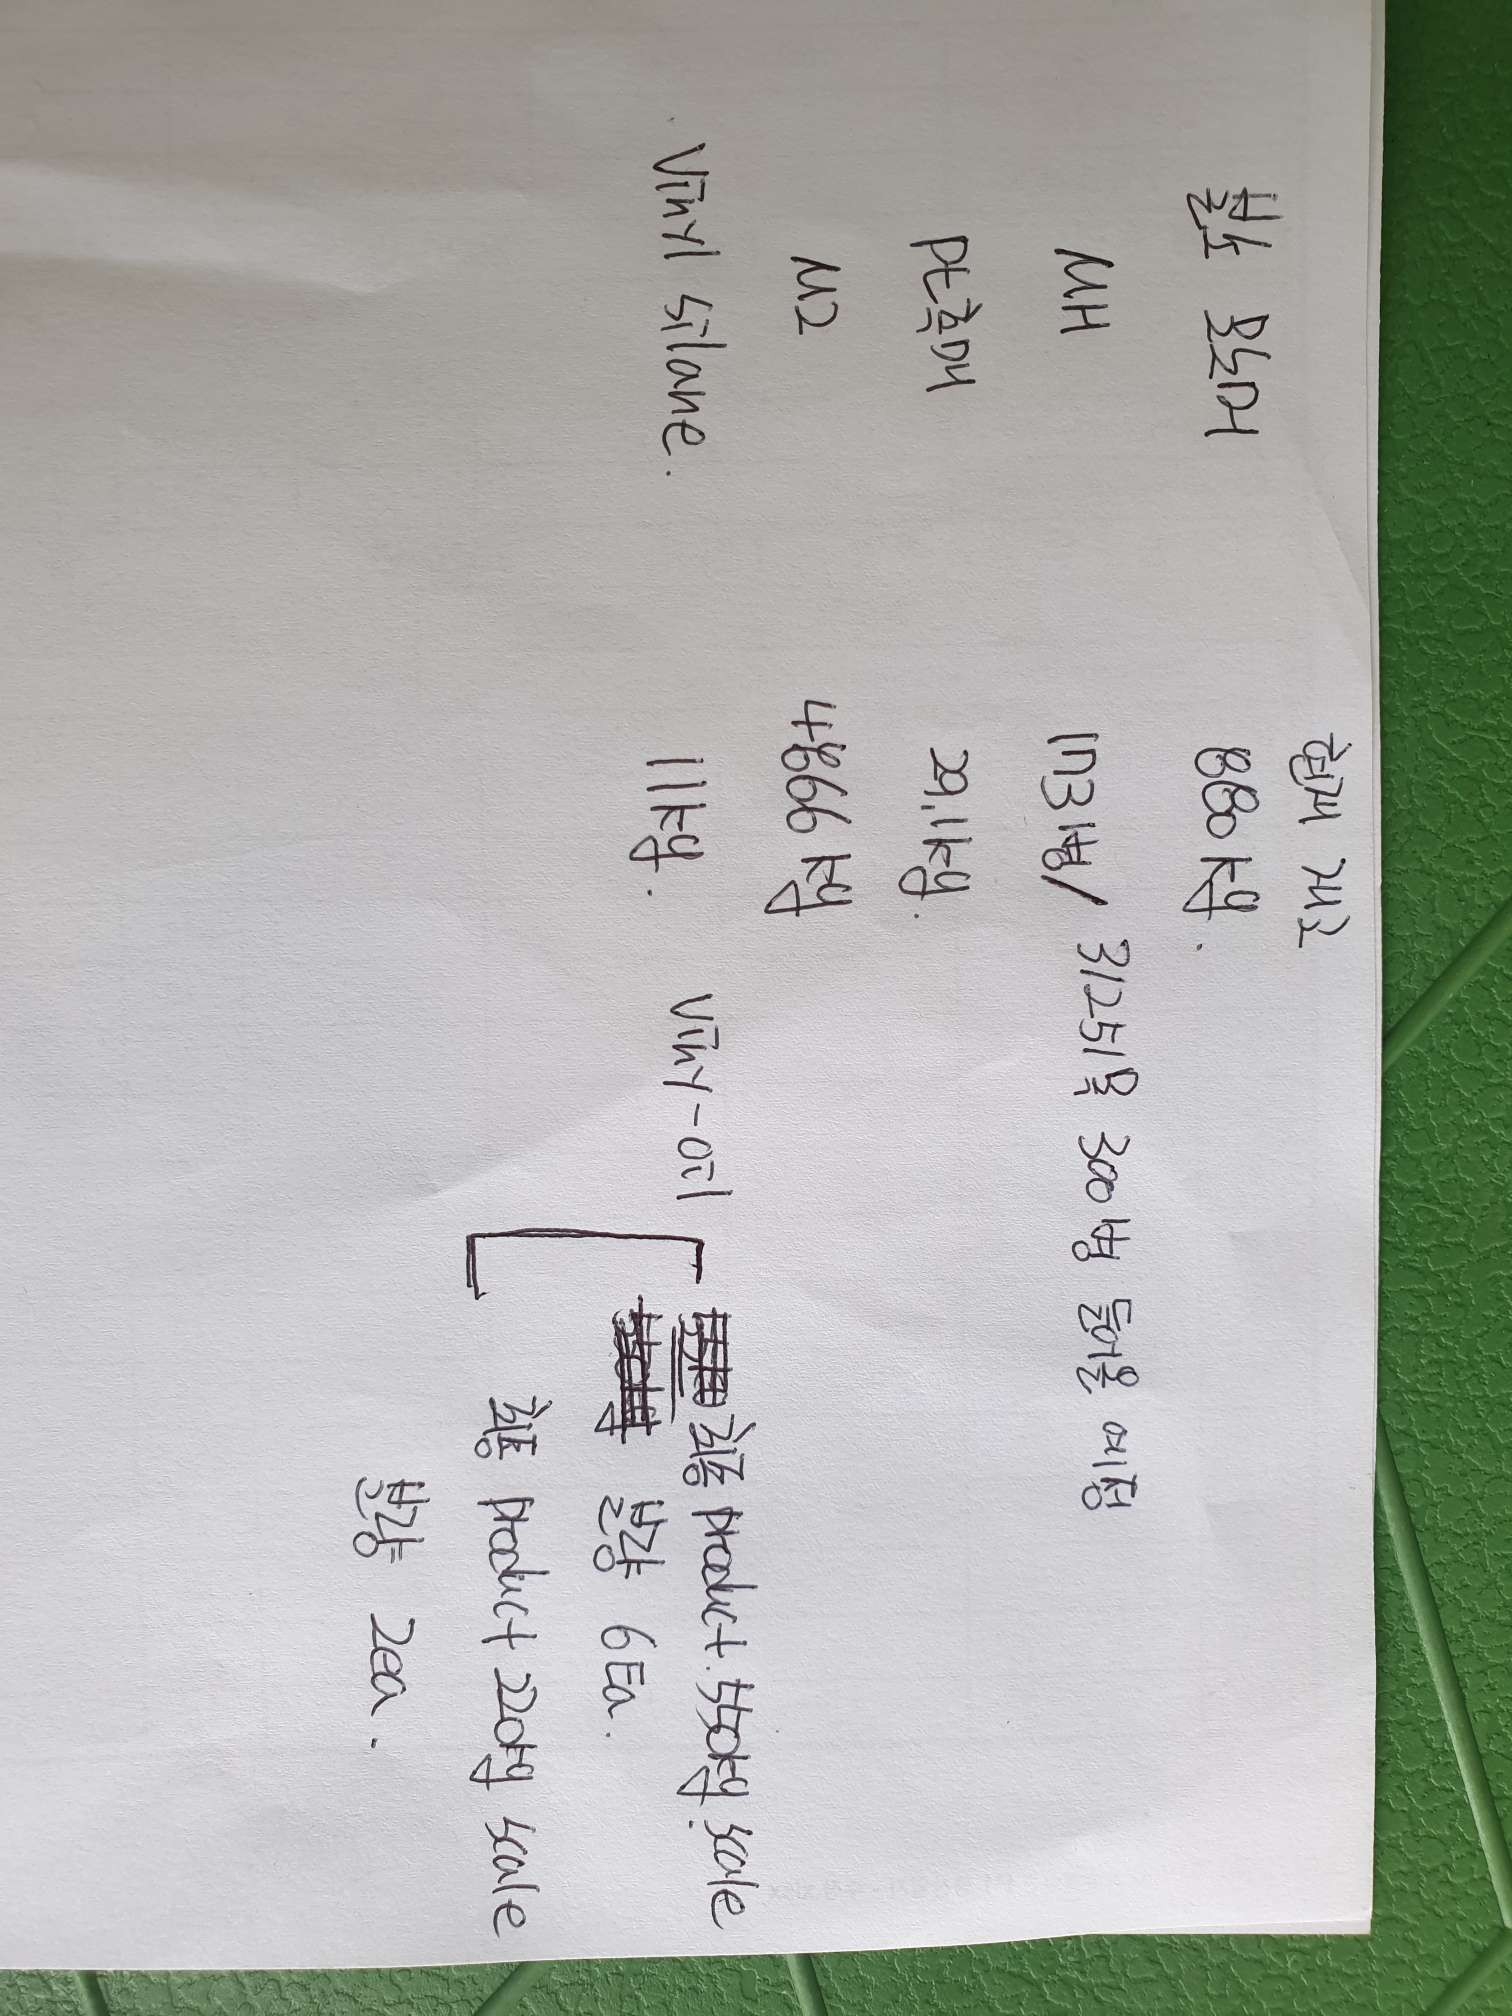 현재 재고
불소 용매 880 kg.
MH 1773병/ 3/25일 300병 들어올 예정
pt촉매 29.1kg.
M2 4866 kg
Vinyl silane. 11kg.
Viny-oil
최종 product. 550kg scale
불량 6Ea.
최종 product 220kg scale
반량 2ea.